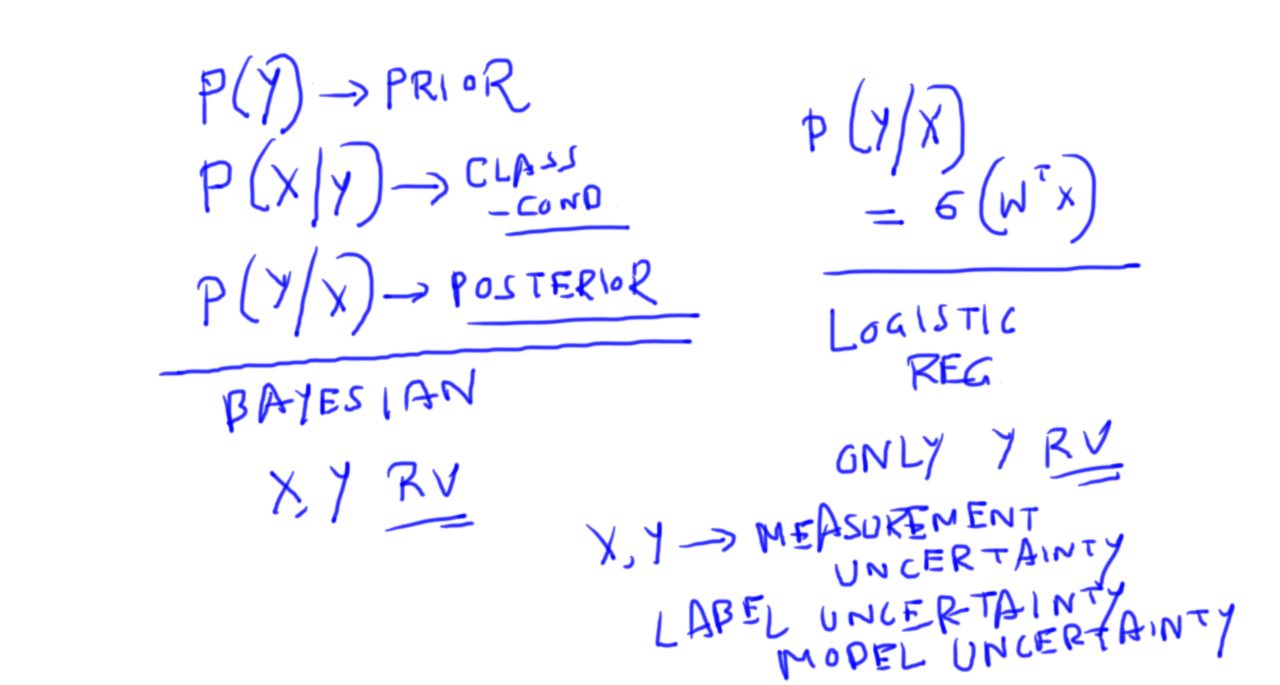 P(Y) → PRIOR
P(X|Y) → CLASS
-COND
P(Y/X) → POSTERIOR
BAYESIAN
X, Y RV
P(Y/X)
= σ(Wᵀx)
LOGISTIC
REG
ONLY Y RV
X, Y → MEASUREMENT
UNCERTAINTY
LABEL UNCERTAINTY
MODEL UNCERTAINTY